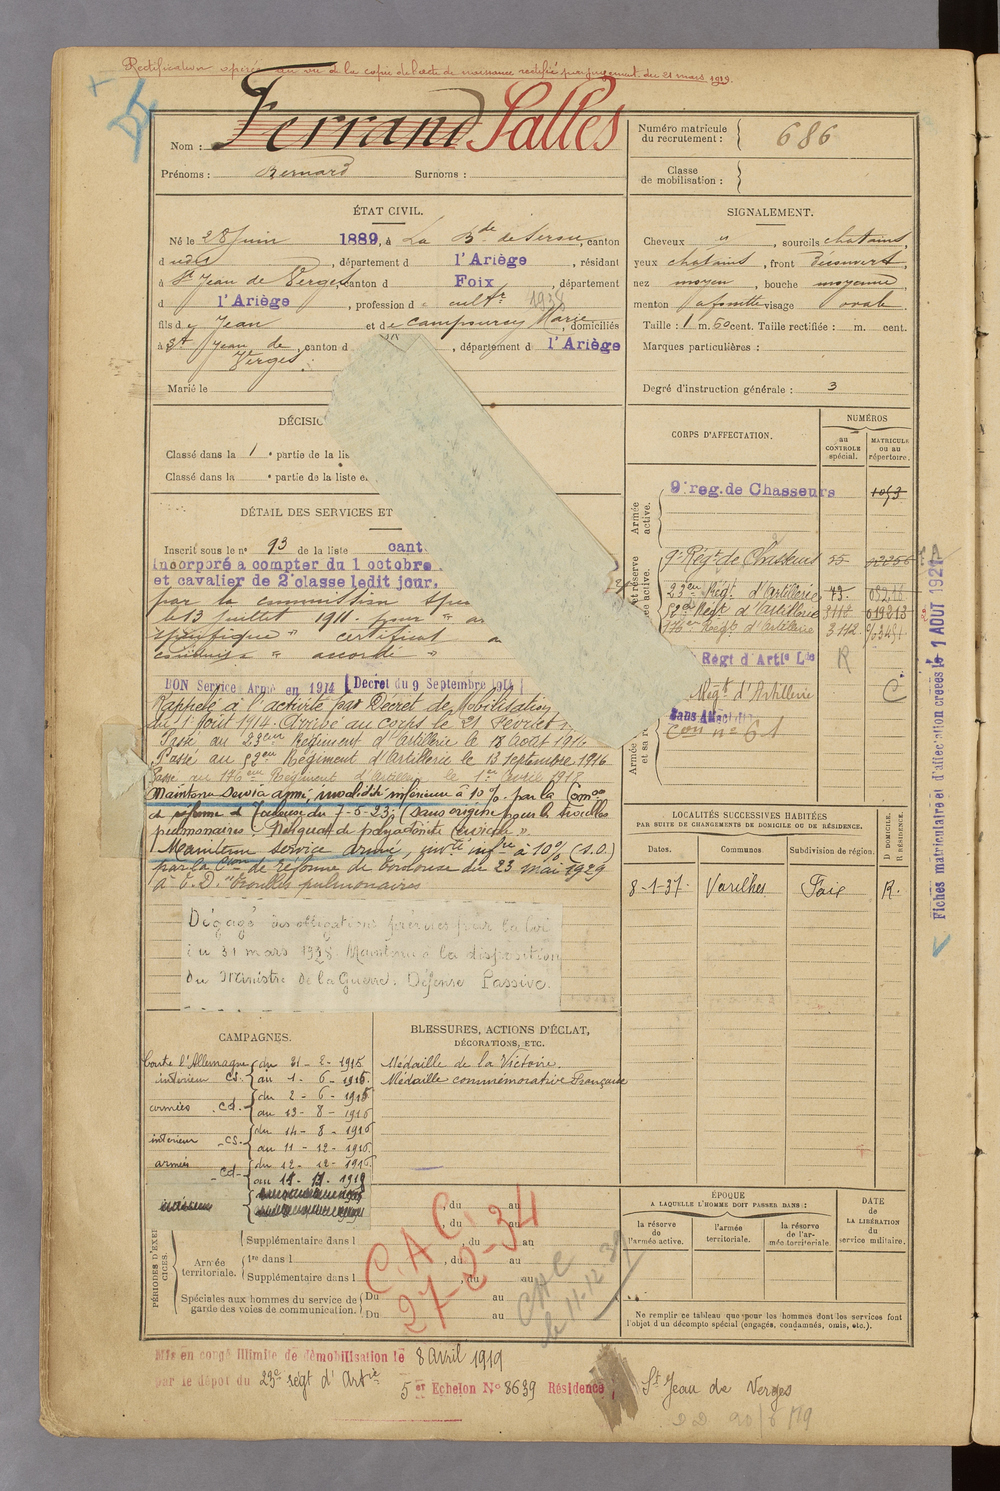 Rectification opérée au vu de la copie de l'acte de naissance rectifié par jugement du 21 mars 1919.
Nom : Ferrand Salles
Prénoms : Bernard Surnoms :
Numéro matricule du recrutement : 686
Classe de mobilisation :
ÉTAT CIVIL.
Né le 28 Juin 1889, à La B.de de Serou, canton
d udit, département d l'Ariège, résidant
à St Jean de Verges, canton d Foix, département
d l'Ariège, profession d cultr 1938
fils de Jean et de Campourcy Marie, domiciliés
à St Jean de Verges, canton d, département d l'Ariège
Marié le
SIGNALEMENT.
Cheveux, sourcils chatains,
yeux chatains, front découvert,
nez moyen, bouche moyenne,
menton à fossette visage ovale
Taille : 1 m. 50 cent. Taille rectifiée : m. cent.
Marques particulières :
Degré d'instruction générale : 3
DÉCISIO
Classé dans la 1e partie de la lis
Classé dans la e partie de la liste e
DÉTAIL DES SERVICES ET
Inscrit sous le n° 93 de la liste cant
Incorporé a compter du 1 octobre
et cavalier de 2e classe ledit jour.
par la commission spé
le 13 juillet 1911.
spécifique " certificat
accordé "
BON Service Armé en 1914 (Decret du 9 Septembre 1914
Rappelé à l'activité par Décret de Mobilisation
du 1er Août 1914. Arrivé au corps le 21 Février
Passé au 23eme Régiment d'Artillerie le 18 août 1916
Passé au 52eme Régiment d'Artillerie le 13 Septembre 1916
Passé au 176eme Régiment d'Artillerie le 1er avril 1918
Maintenu Service armé, invalidité inférieure à 10% par la Comon
de réforme de Toulouse du 7-5-23, (sans origine pour les troubles
pulmonaires
Maintenu service armé, invté infre à 10% (S.O.)
par la Cion de réforme de Toulouse du 23 mai 1929
à E.D. "Troubles pulmonaires
Dégagé des obligations prévues par la loi
du 31 mars 1928. Maintenu à la disposition
du Ministre de la Guerre. Défense Passive.
CORPS D'AFFECTATION.
NUMÉROS
au CONTROLE spécial.
MATRICULE ou au répertoire.
Armée active.
9e reg. de Chasseurs 1053
9e Régt de Chasseurs 55
23eme Régt d'Artillerie 43
52eme Régt d'Artillerie 3118 019213
176eme Régt d'Artillerie 3112
Régt d'Artie Lde R
Régt d'Artillerie C
Sans Affect
LOCALITÉS SUCCESSIVES HABITÉES
PAR SUITE DE CHANGEMENTS DE DOMICILE OU DE RÉSIDENCE.
Dates. Communes Subdivision de région. D DOMICILE. R RÉSIDENCE.
8-1-37. Varilhes Foix R.
Fiches matriculaire et d'affectation créées le 1 AOUT 1921
CAMPAGNES.
Contre l'Allemagne du 21 - 2 - 1915
intérieur CS. au 1 - 6 - 1915.
armées Cd. du 2 - 6 - 1915
au 13 - 8 - 1916
intérieur CS. du 14 - 8 - 1916
au 11 - 12 - 1916.
armées Cd. du 12 - 12 - 1916.
BLESSURES, ACTIONS D'ÉCLAT,
DÉCORATIONS, ETC.
Médaille de la Victoire.
Médaille commémorative Française
PÉRIODES D'EXERCICES.
, du au
, du au
Supplémentaire dans l , du au
Armée territoriale.
1re dans l , du au
Supplémentaire dans l , du au
Spéciales aux hommes du service de garde des voies de communication.
Du au
Du au
C.A.C.
27-2-34
CAC
le 11.12.39
ÉPOQUE
A LAQUELLE L'HOMME DOIT PASSER DANS :
la réserve de l'armée active.
l'armée territoriale.
la réserve de l'armée territoriale.
DATE DE LA LIBÉRATION du service militaire.
Ne remplir ce tableau que pour les hommes dont les services font
l'objet d'un décompte spécial (engagés, condamnés, omis, etc.).
Mis en congé illimité de démobilisation le 8 Avril 1919
par le dépot du 23e régt d'Artie
5er Echelon N° 8639 Résidence : St Jean de Verges